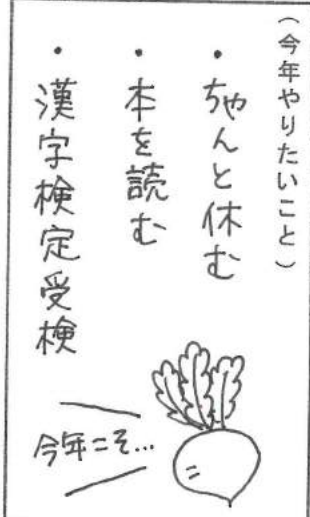 （今年やりたいこと）
・ちゃんと休む
・本を読む
・漢字検定受検
今年こそ…